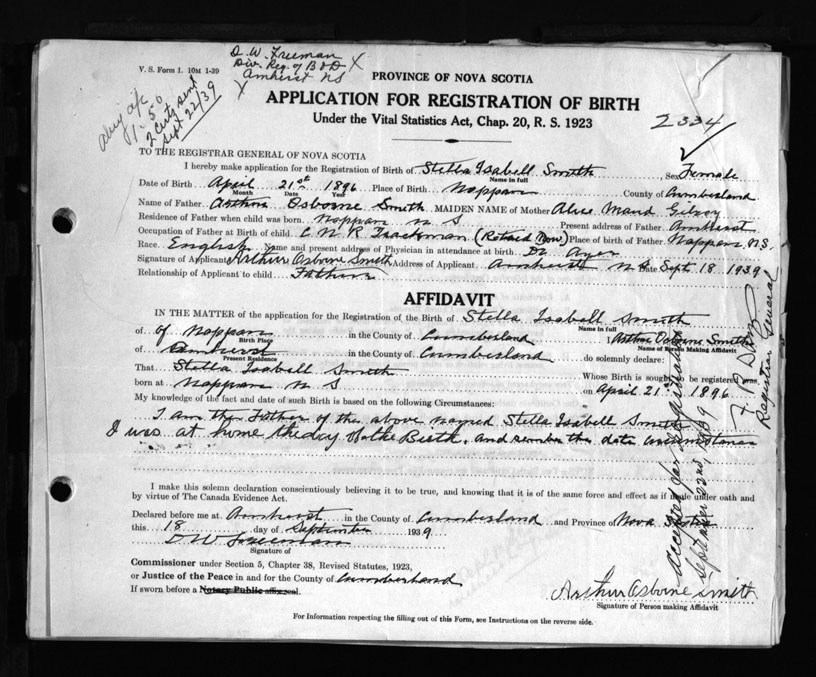 D. W. Freeman
Div. Reg. of B & D X
Amherst NS
X
V. S. Form 1. 10M 1-39
1.50
2 certs sent
Sept 22/39
PROVINCE OF NOVA SCOTIA
APPLICATION FOR REGISTRATION OF BIRTH
Under the Vital Statistics Act, Chap. 20, R. S. 1923
2334
TO THE REGISTRAR GENERAL OF NOVA SCOTIA
I hereby make application for the Registration of Birth of Stella Isabell Smith Sex Female
Name in full
Date of Birth April 21st 1896 Place of Birth Nappan County of Cumberland
Month Date Year
Name of Father Arthur Osborne Smith MAIDEN NAME of Mother Alice Maud Gilroy
Residence of Father when child was born Nappan N S Present address of Father Amherst
Occupation of Father at Birth of child C N R Trackman (Retired Now) Place of birth of Father Nappan, N.S.
Race English Name and present address of Physician in attendance at birth Dr
Signature of Applicant Arthur Osborne Smith Address of Applicant Amherst N S Date Sept 18 1939
Relationship of Applicant to child Father
AFFIDAVIT
IN THE MATTER of the application for the Registration of the Birth of Stella Isabell Smith
Name in full
of of Nappan in the County of Cumberland Arthur Osborne Smith
Birth Place Name of Person Making Affidavit
of Amherst in the County of Cumberland do solemnly declare:
Present Residence
That Stella Isabell Smith Whose Birth is sought to be registered was
born at Nappan N S on April 21st 1896
My knowledge of the fact and date of such Birth is based on the following Circumstances:
I am the Father of the above named Stella Isabell Smith
I was at home the day of the Birth. and the date
I make this solemn declaration conscientiously believing it to be true, and knowing that it is of the same force and effect as if made under oath and
by virtue of The Canada Evidence Act.
Declared before me at Amherst in the County of Cumberland and Province of Nova Scotia
this 18 day of September 1939
D W Freeman
Signature of
Commissioner under Section 5, Chapter 38, Revised Statutes, 1923,
or Justice of the Peace in and for the County of Cumberland
If sworn before a Notary Public affix seal.
Arthur Osborne Smith
Signature of Person making Affidavit
For Information respecting the filling out of this Form, see Instructions on the reverse side.
Accepted for registration
September 22nd, 1939
Registrar General